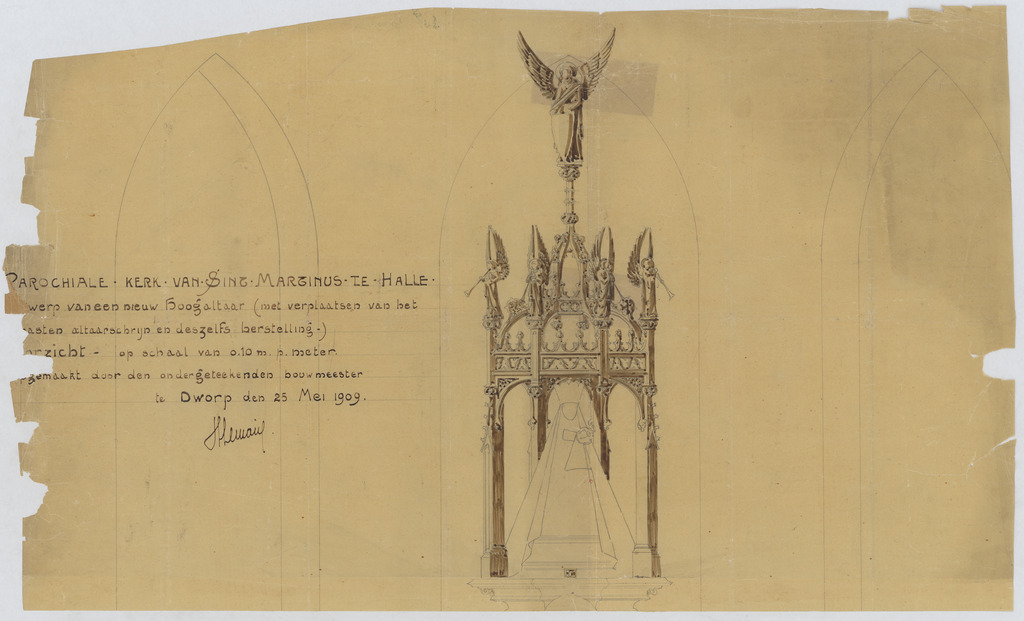 PAROCHIALE · KERK · VAN · SINT · MARTINUS · TE · HALLE ·
werp van een nieuw Hoogaltaar (met verplaatsen van het
asten altaarschrijn en deszelfs herstelling.)
rzicht – op schaal van 0.10 m. p. meter.
gemaakt door den ondergeteekenden bouwmeester
te Dworp den 25 Mei 1909.